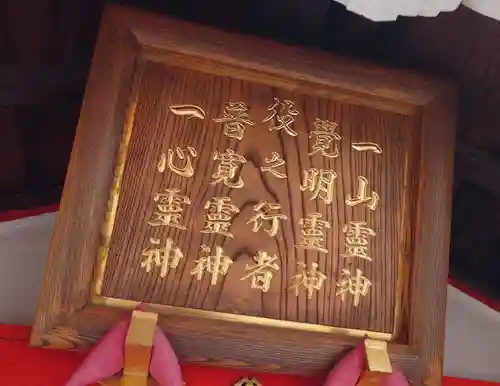 一山靈神
覺明靈神
役之行者
普寛靈神
一心靈神